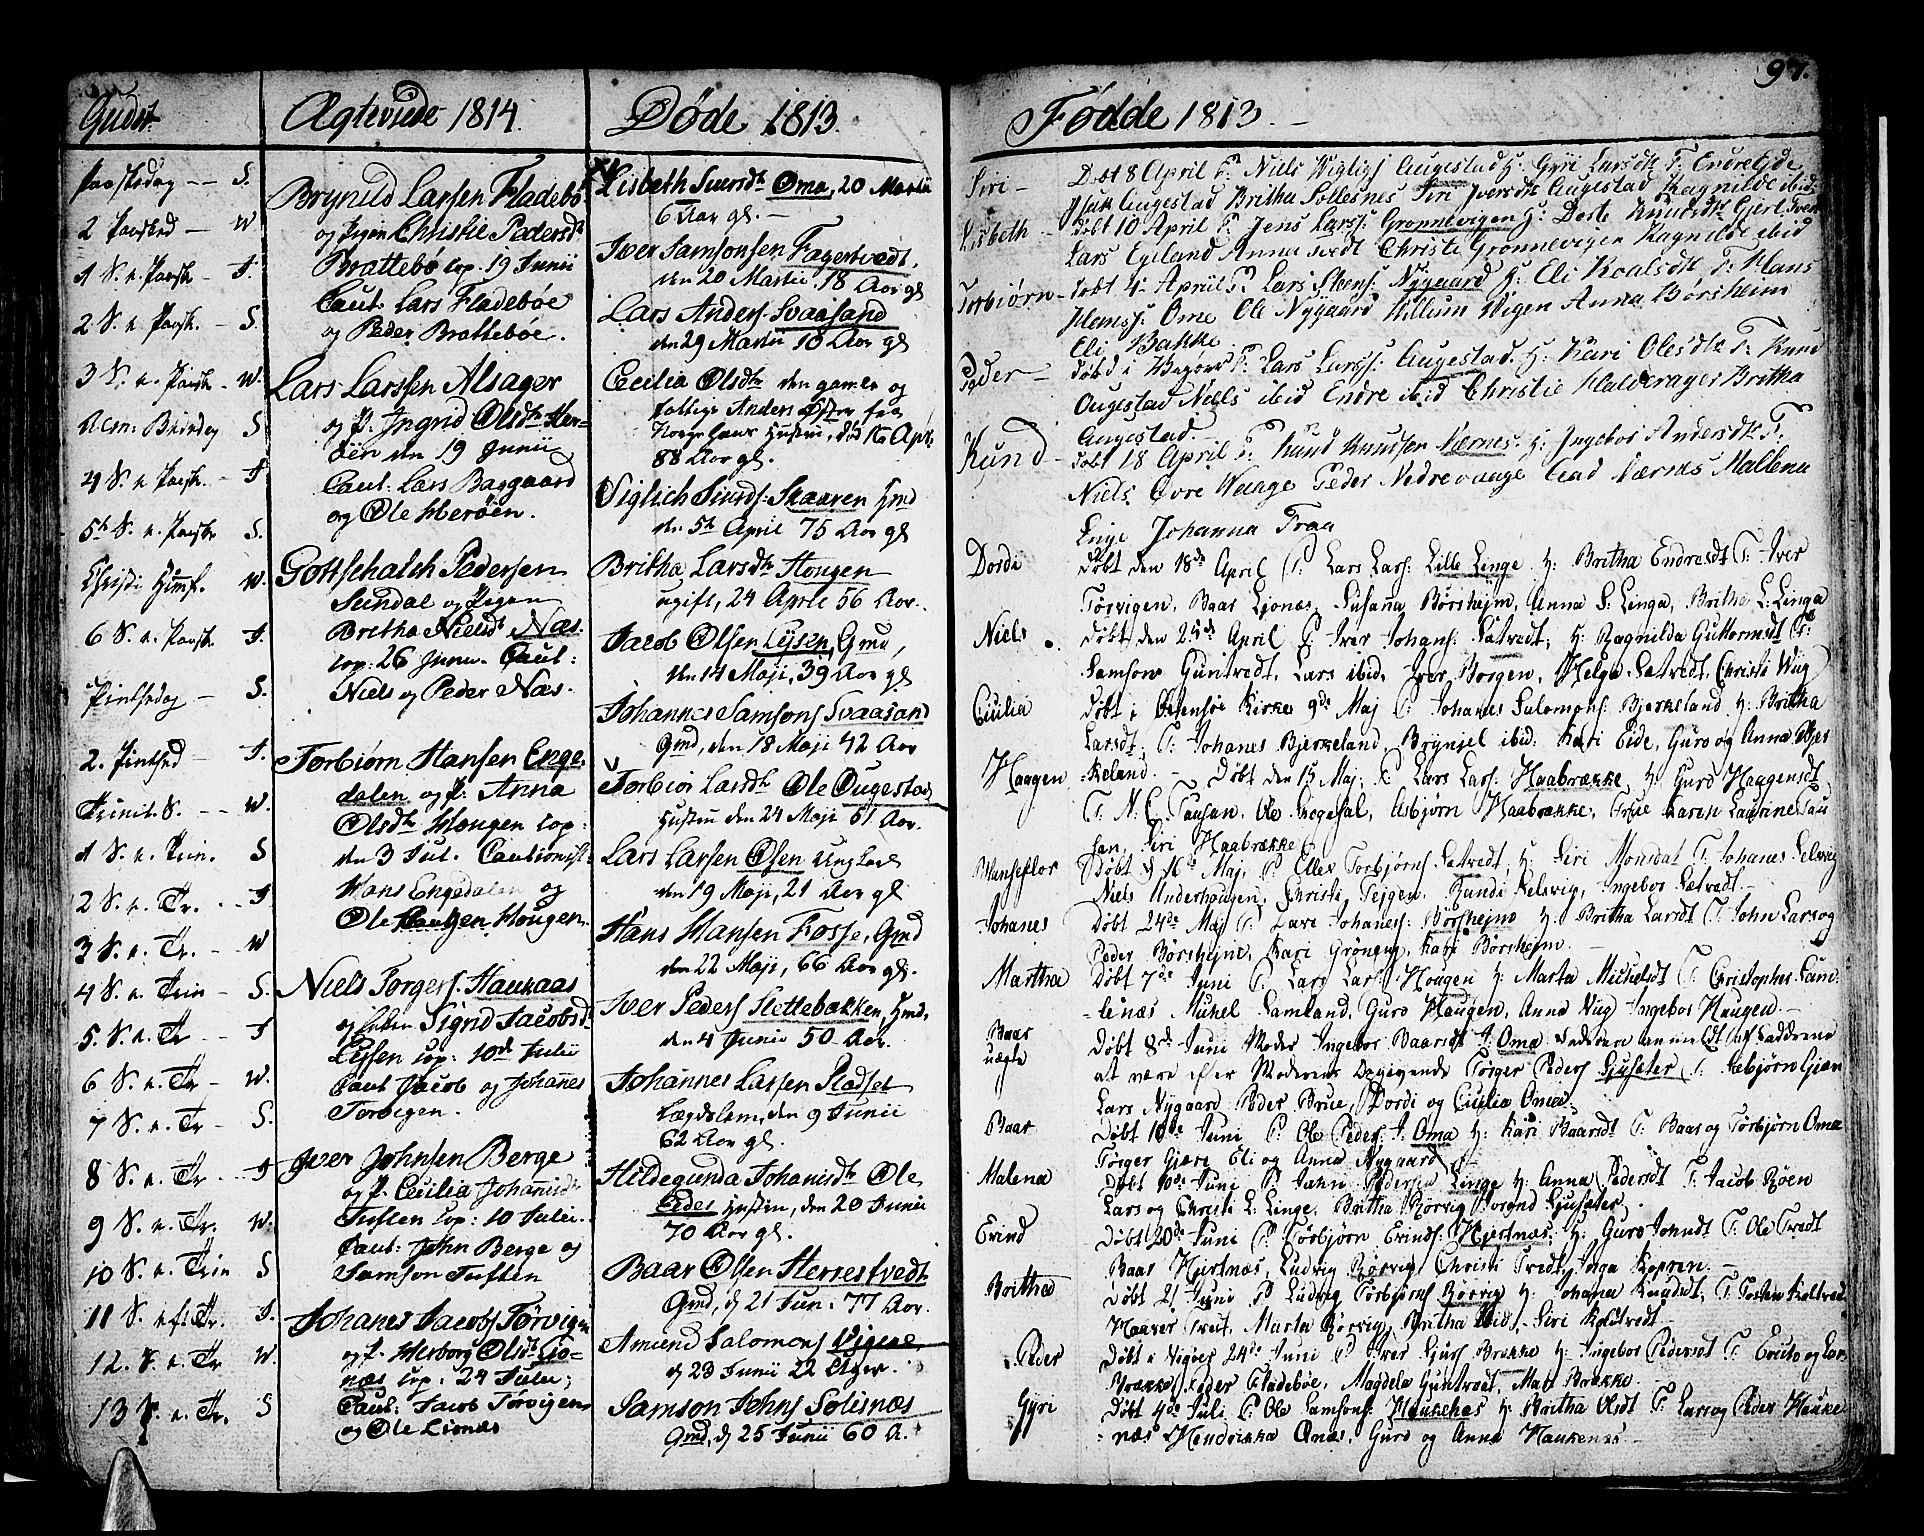 97.
Gudst.
Paaskedag - - S.
2 Paasked - W
1 S. e. Paask - J.
2. S. e. Paask. - S.
3 S. e. Paask - W.
Alm: Beededag S
4 S. e. Paask. - J
5te S. e. Paask S.
Christi Himmf. W.
6 S. e. Paask. J.
Pintsedag - S.
2. Pintsed - J.
Trinit. S. - - W.
1 S. e. Trin. S
2 S. e. Tr. - - J
3 S. e. Tr. - W
4 S. e. Trin - S.
5. S. e. Tr - - J
6 S. e. Tr - W.
7 S. e. Tr - S.
8 S. e. Tr. - - J
9 S. e. Tr. W.
10 S. e. Trin S
11 S. eft. Tr. J.
12. S. e. Tr W.
13 S. e. Tr. S
Ægteviede 1814.
Brynild Larsen Fladebö
og Pigen Christie Pedersdr
Brattebö cop. 19 Junii
Caut. Lars Fladebøe
og Peder Brattebøe.
Lars Larssen Alsager
og P. Ingrid Olsdtr Her-
öen den 19 Junii
Caut. Lars Baggaard
og Ole Herøen.
Gottschalch Pedersen
Seindal og Pigen
Britha Nielsdt Næs.
cop: 26 Junii. Caut:
Niels og Peder Næs.
Torbiörn Hansen Enge
dalen og P. Anna
Olsdtr Hougen cop:
den 3 Jul. Cautionist:
Hans Engedalen og
Ole Hougen.
Niels Torgers. Haukaas
og Sigrid Jacobsd
Lyssen cop: 10de Julii
Caut Jacob og Johannes
Torvigen.
Iver Johnsen Berge
og P. Cecilia Johannisdr
Tuften cop: 10 Julii.
Caut: John Berge og
Samson Tuften
Johanes Jacobs Törvigen
og P. Herborg Olsdt Lio-
næs cop: 24 Julii;
Caut: Jacob Törvigen
og Ole Lionæs
Døde 1813.
Lisbeth Siursdtr Oma, 20 Martii
6 Aar gl. -
Iver Samsonsen Fagertvedt,
den 20 Martii 18 Aar gl
Lars Anders. Svaasand
den 29 Martii 18 Aar gl
Cecilia Olsdtr den gamle og
fattige Anders
Hustru, d. 16 Apr:
88 Aar gl.
Viglich Siurds. Skaaren Gmd
den 5te April 75 Aar gl
Britha Larsdtr Hougen
ugift, 24 April 56 Aar.
Jacob Olsen Lysen, Gmd,
den 14 Maji, 39 Aar gl
Johannes Samsons Svaasand
Gmd, den 18 Maji 42 Aar
Torbiör Larsdtr Ole Ougestad
Hustru den 24 Maji 61 Aar.
Lars Larsen Osen ung karl
den 19 Maji, 21 Aar gl
Hans Hansen Fosse, Gmd
den 22 Maji, 66 Aar gl.
Iver Peders Slettebakken, Hmd,
den 4 Junii 50 Aar.
Johannes Larsen Stadset
Lægdslem, den 9 Junii
62 Aar gl.
Hildegunda Johanisdtr Ole
Eides Hustru, den 20 Junii
70 Aar gl.
Baar Olsen Herrestvedt
Gmd, d 21 Jun: 77 Aar.
Amund Salomons Vigene,
d 23 Junii 22 Aar.
Samson Johns Solesnæs
Gmd, d 25 Junii 60 A.
Fødde 1813.
Siri - Døbt 8 April P. Niels Wigligs Augestad H: Gyri Larsdtr F. Endretjede
Isak Augestad Britha Sollesnes Siri Iversdtr Augestad Ragnilde ibid
Lisbeth - Døbt 10 April P. Jens Larss: Grönnevigen H: Dorte Knudsdtr Gjert
Lars Egeland Anna Christi Grønnevigen Ragnilde ibid
Torbiørn - Døbt 4. April P. Lars Steens. Nygaard H: Eli Roalsdtr F: Hans
Hanss: Ome Ole Nygaard Willum Wigen Anna Børsheim
Eli Bakke
Peder - Døbd i Wigøer P. Lars Larss: Augestad. H: Kari Olesdtr F: Knud
Ougestad Niels ibid Endre ibid Christie Halderager Britha
Augestad.
Knud - Døbt 18 April P. Knud Knudsen Nærnes. H: Ingebor Andersdtr F.
Niels Øvre Waage Peder Nedrevaage Nærnes Mallena
Linge Johanna Traa
Dordi Døbt den 18de April P. Lars Lars: Lille Linge. H: Britha Endresdt F: Iver
Torvigen, Baar Ljonæs, Susana Børshejm, Anna S: Linga, Britha L: Linga
Niels. Døbt den 25de April P. Iver Johans: Sætvedt; H: Ragnilda Guttormsdt F:
Samson Guntvedt, Lars ibid, Iver Borgen, Helga Sætvedt, Christi Wiig
Ciulia Døbt i Østensøe Kirke 9de Maj P. Johanes Salomons: Bjerkeland H: Britha
Larsdt, F: Johanes Bjerkeland, Brynjel ibid: Kari Eide, Guro og Anna Bjer
Haagen -keland. - Døbt den 15 Maj P. Lars Lars: Haabrække H: Guro Haagensdt
F. N. C. Tausan. Ole Asbjørn Haabrække, Frue Karen Laurine Tau
san, Siri Haabrække
Wenseflor Døbt d 16de Maj. P. Ellev Torbjørns Sætvedt, H: Siri Monsdat F. Johanes Selvig
Niels Underhougen, Christi Tejgen, Randi Selvig, Ingebor Sætvedt. -
Johanes Døbt 24de Maj P. Lars Johanes: Børshejm H: Britha Larsdt F. John Lars og
Peder Børshejm, Kari Grönevg, Kari Børshejm. -
Martha Døbt 7de Juni P. Lars Lars Hougen H: Marta Mickelsdt F. Christopher Sam-
lenæs Mickel Samland, Guro Haugen, Anna Wiig Ingebor Haugen. -
Baar
uægte Døbt 8de Juni Moder Ingebor Baarsdt I: Oma
at være efter Moderens Opgivende Torger Peders Ljusæter F: Asbjørn Gjære
Lars Nygaard Peder Brue, Dordi og Ciulia Omæ.
Baar Døbt 10de Juni P. Ole Peders. I. Oma H: Kari Baarsdt F. Baar og Torbjørn Oma
Torger Gjære Eli og Anna Nygaard -
Malena Døbt 10de Juni P. Jahn Pedersen Linge H: Anna Pedersdt F. Jacob Røen
Lars og Christi L. Linge, Britha Rørvig Ljusæter,
Erind Døbt 20de Juni P. Torbjørn Erinds: Hjertnæs: H: Guro Johndt F. Ole Tvedt
Baar Hiertnæs, Ludvig Rørvig Christi Tvedt, Kopren. -
Britha Døbt 21 Juni P Ludvig Torbjørns Rørvig H: Johana Knudsdt, F. Tosten Koltved
Haaver Tveit, Marta Rørvig, Britha ibid, Siri Koltvedt -
Peder Døbt i Vigøer 24de Juni P Iver Sjurs Brække H: Ingebor Pedersdt F. og Lars
Brække, Peder Fladebøe, Magdela Guntvedt, Mari Brække.
Gyri Døbt 4de Juli P. Ole Samsons: Haukenæs H: Britha Olsdt F. Lars og Peder Hauke
næs Hendrikka Onæs, Guro og Anna Haukenæs -